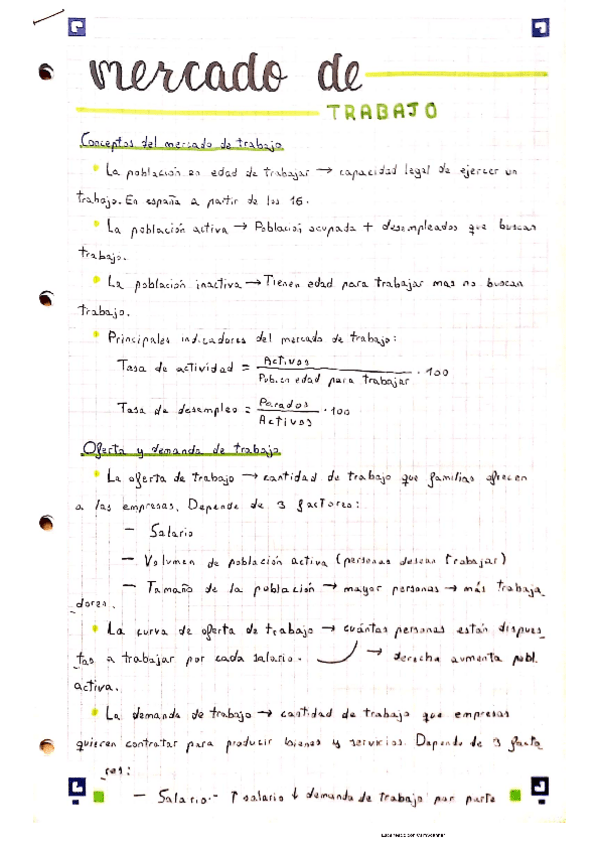 mercado de
TRABAJO
Conceptos del mercado de trabajo
• La población en edad de trabajar → capacidad legal de ejercer un
trabajo. En españa a partir de los 16.
• La población activa → Población ocupada + desempleados que buscan
trabajo.
• La población inactiva → Tienen edad para trabajar mas no buscan
trabajo.
• Principales indicadores del mercado de trabajo:
Tasa de actividad = Activos / Pob. en edad para trabajar · 100
Tasa de desempleo = Parados / Activos · 100
Oferta y demanda de trabajo
• La oferta de trabajo → cantidad de trabajo que familias ofrecen
a las empresas. Depende de 3 factores:
— Salario
— Volumen de población activa (personas desean trabajar)
— Tamaño de la población → mayor personas → más trabaja_
_dores.
• La curva de oferta de trabajo → cuántas personas están dispues_
_tas a trabajar por cada salario. → derecha aumenta pobl.
activa.
• La demanda de trabajo → cantidad de trabajo que empresas
quieren contratar para producir bienes y servicios. Depende de 3 facto_
_res:
— Salario.- ↑ salario ↓ demanda de trabajo por parte